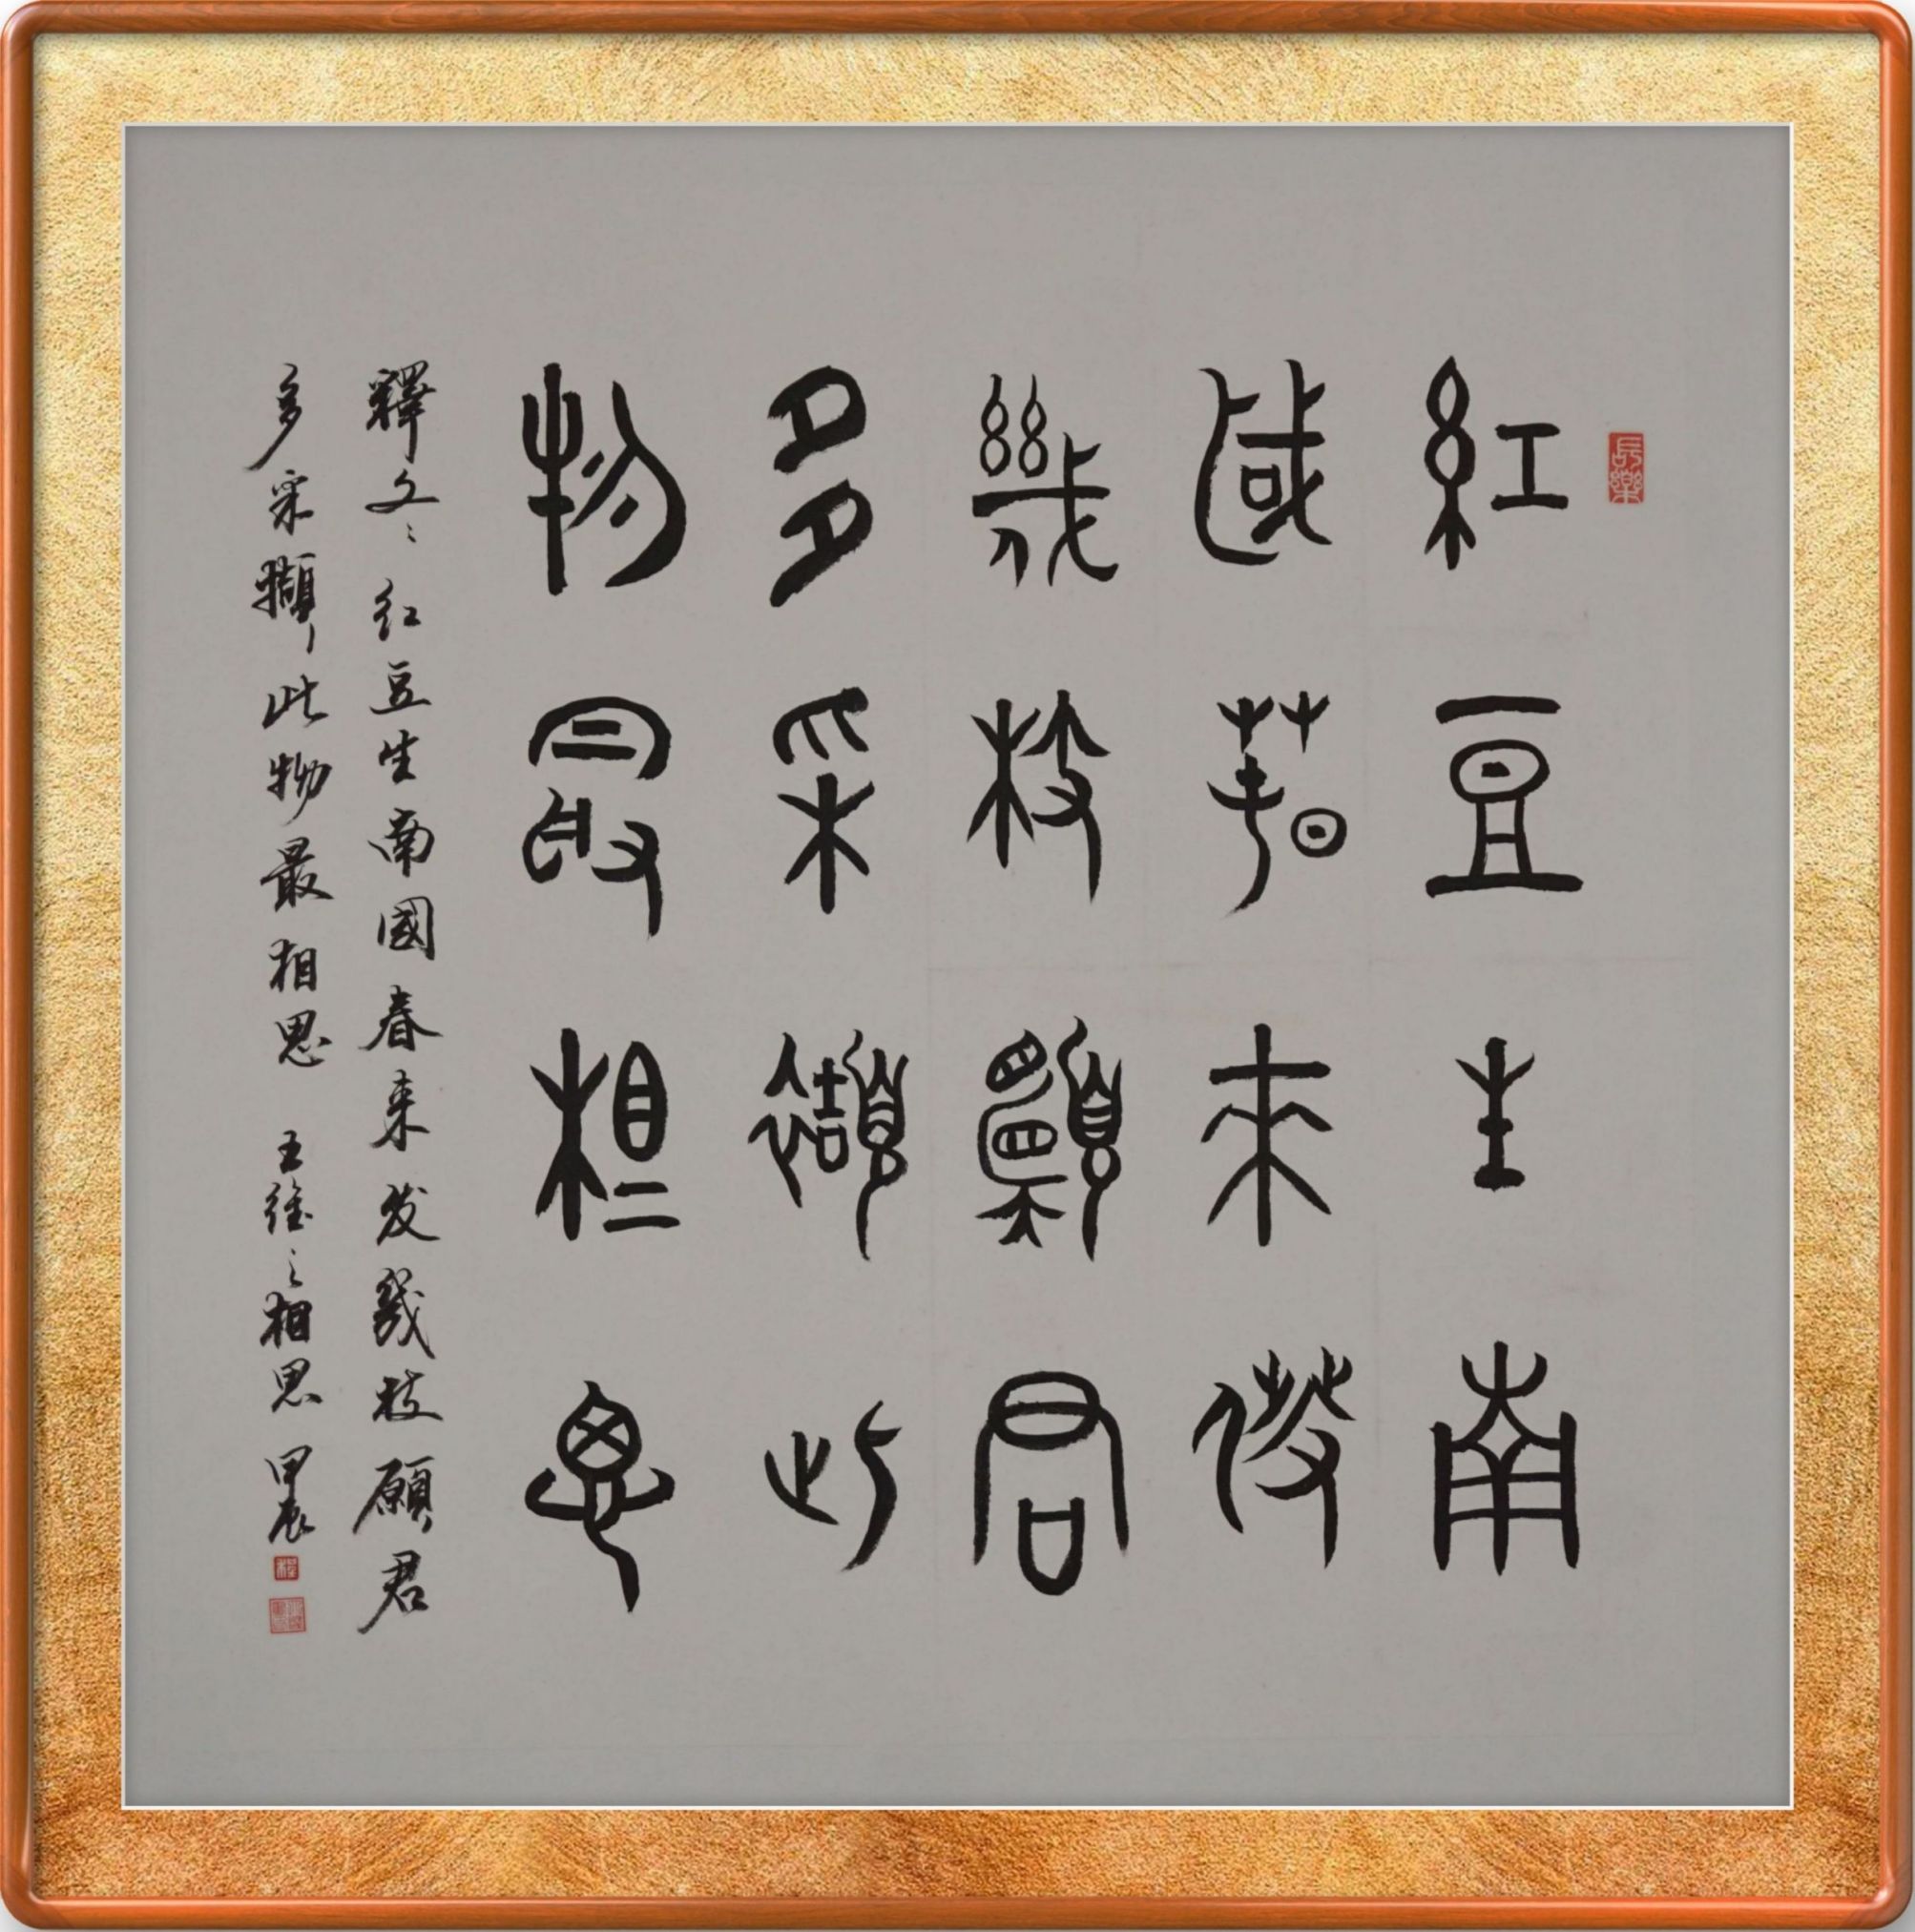 長樂
紅豆生南
國春來發
幾枝願君
多采擷此
物最相思
釋文：紅豆生南國春来发幾枝願君
多采擷此物最相思 王維之相思 甲辰